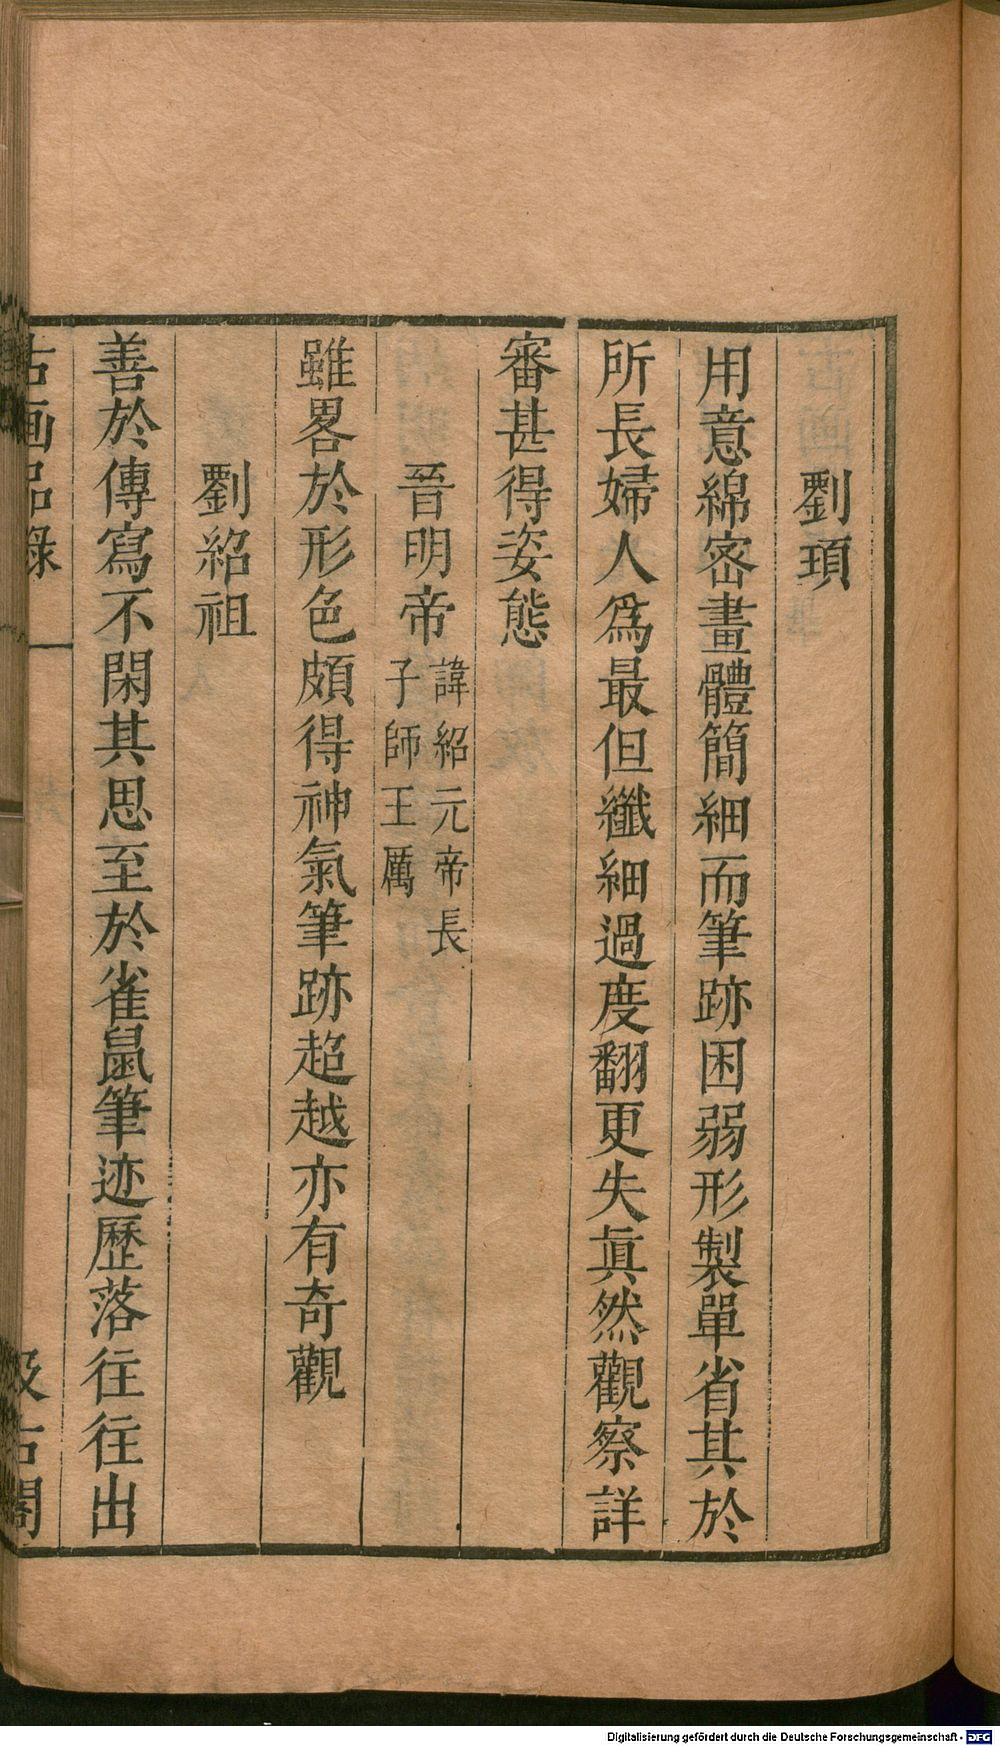 劉頊
用意綿密畫體簡細而筆跡困弱形製單省其於
所長婦人爲最但纖細過度翻更失眞然觀察詳
審甚得姿態
晉明帝 諱紹元帝長
子師王厲
雖畧於形色頗得神氣筆跡超越亦有奇觀
劉紹祖
善於傳寫不閑其思至於雀鼠筆迹歷落往往出
古画品錄 一 汲古閣
Digitalisierung gefördert durch die Deutsche Forschungsgemeinschaft - DFG